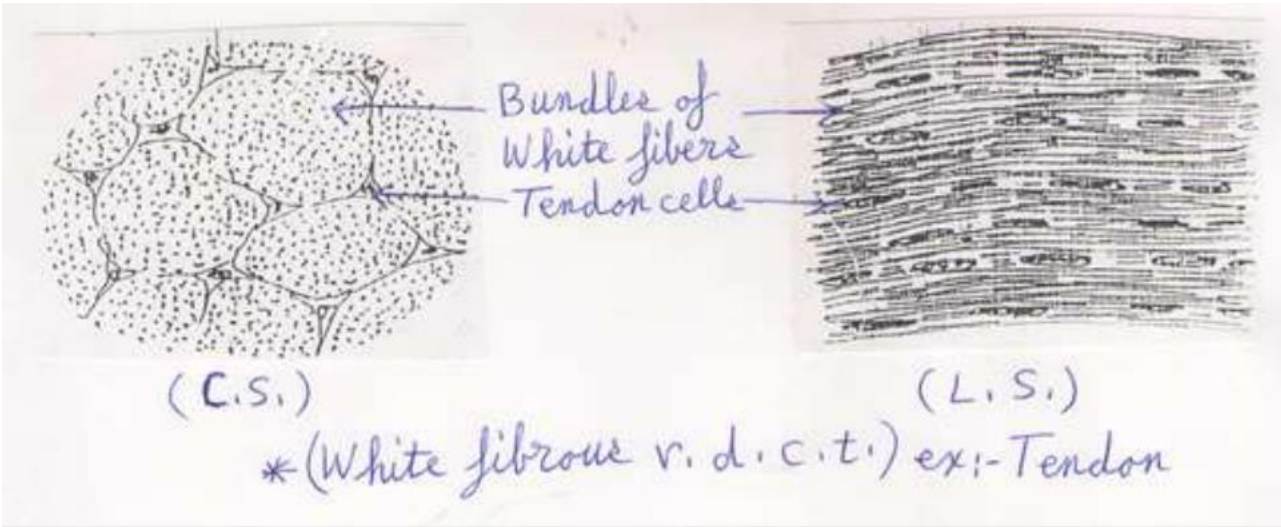 Bundles of
White fibers
Tendon cells
(C.S.)
(L.S.)
*(White fibrous r.d.c.t.) ex:- Tendon